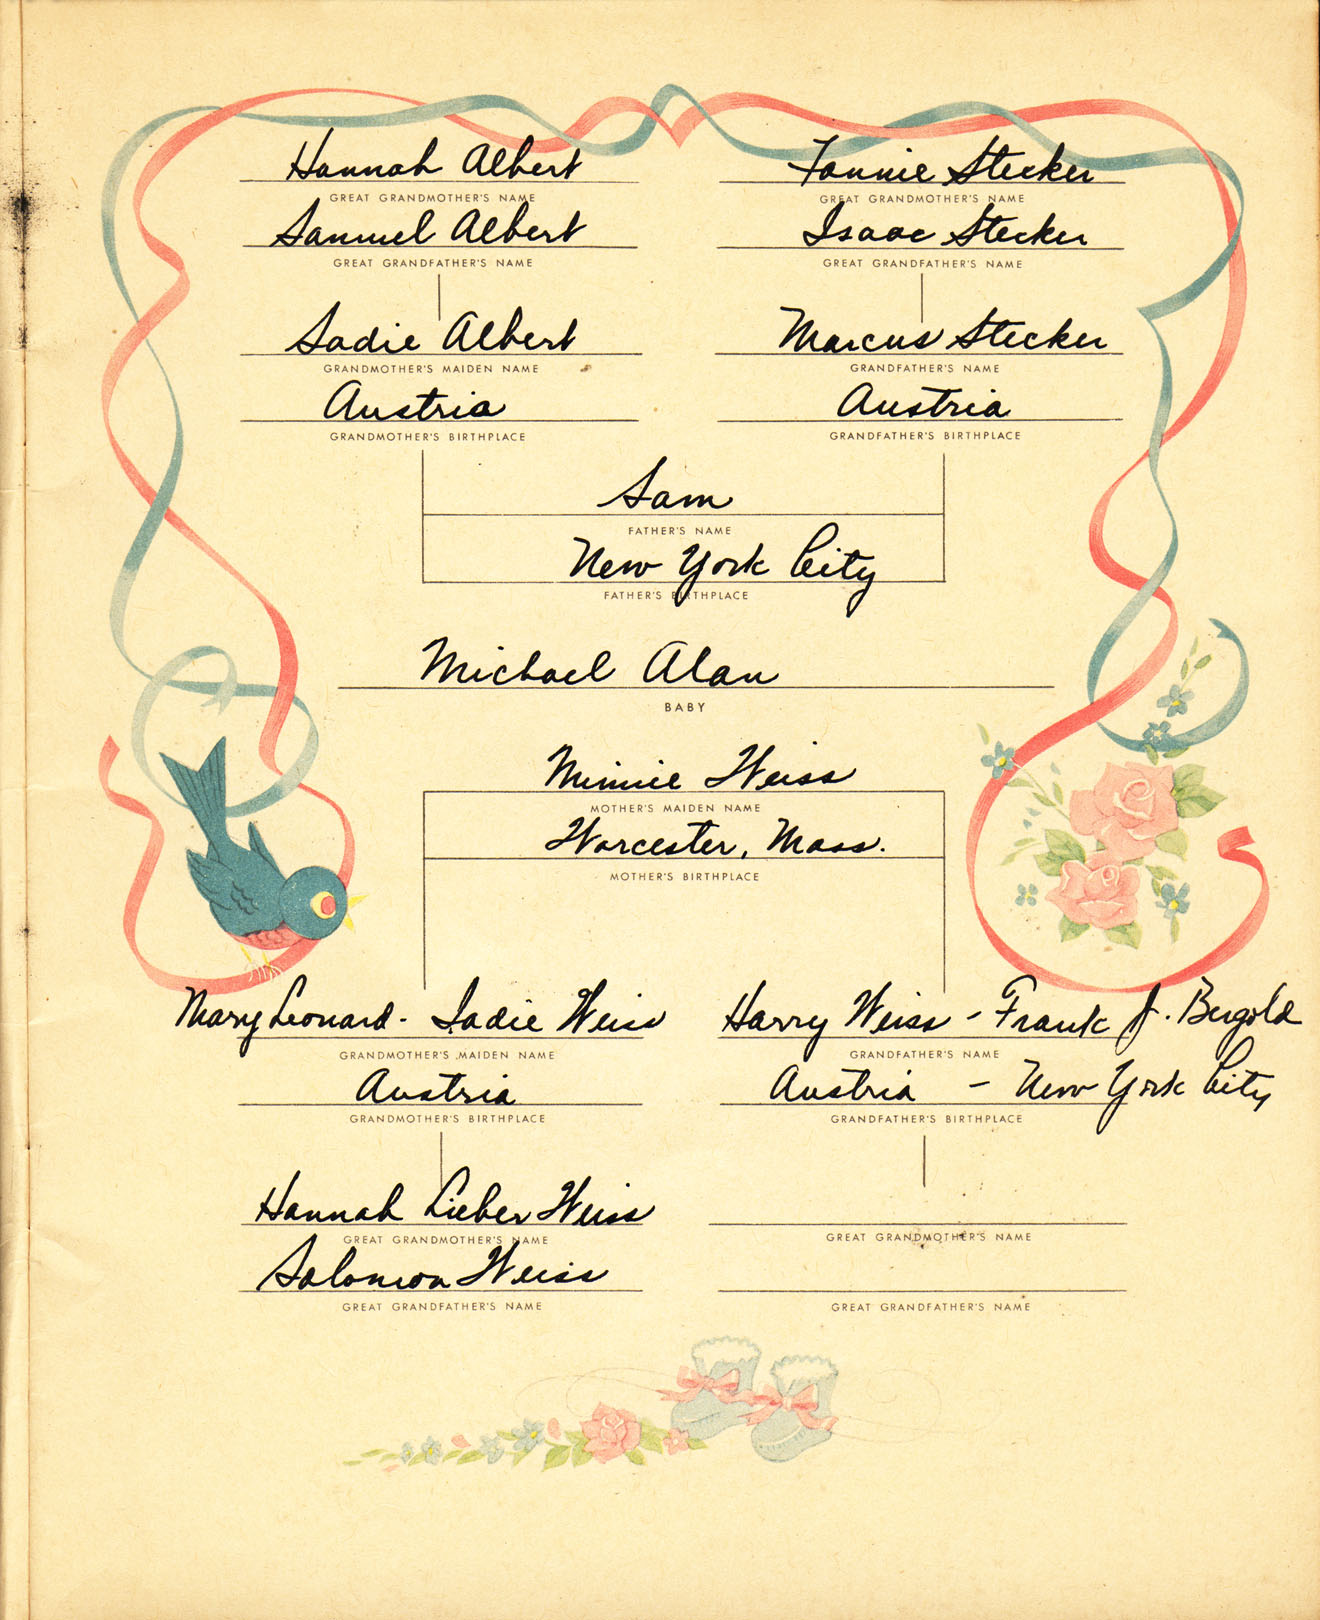 Hannah Albert
GREAT GRANDMOTHER'S NAME
Samuel Albert
GREAT GRANDFATHER'S NAME
Fannie Stecker
GREAT GRANDMOTHER'S NAME
Isaac Stecker
GREAT GRANDFATHER'S NAME
Sadie Albert
GRANDMOTHER'S MAIDEN NAME
Austria
GRANDMOTHER'S BIRTHPLACE
Marcus Stecker
GRANDFATHER'S NAME
Austria
GRANDFATHER'S BIRTHPLACE
Sam
FATHER'S NAME
New York City
FATHER'S BIRTHPLACE
Michael Alan
BABY
Minnie Weiss
MOTHER'S MAIDEN NAME
Worcester, Mass.
MOTHER'S BIRTHPLACE
Mary Leonard - Sadie Weiss
GRANDMOTHER'S MAIDEN NAME
Austria
GRANDMOTHER'S BIRTHPLACE
Harry Weiss - Frank J. Bergold
GRANDFATHER'S NAME
Austria - New York City
GRANDFATHER'S BIRTHPLACE
Hannah Lieber Weiss
GREAT GRANDMOTHER'S NAME
Solomon Weiss
GREAT GRANDFATHER'S NAME
GREAT GRANDMOTHER'S NAME
GREAT GRANDFATHER'S NAME